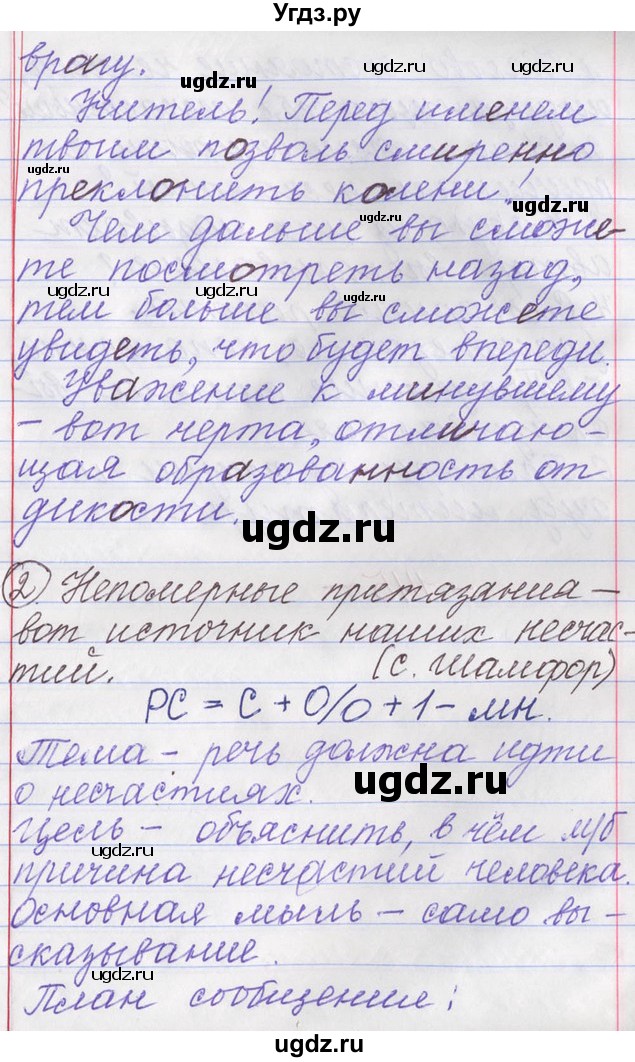 Угдз.ру
врагу.
ugdz.ru ugdz.ru
Учитель! Перед именем
твоим позволь смиренно
ugdz.ru ugdz.ru
преклонить колени!
ugdz.ru
Чем дальше вы сможе-
те посмотреть назад,
ugdz.ru ugdz.ru ugdz.ru
тем больше вы сможете
увидеть, что будет впереди.
ugdz.ru
Уважение к минувшему
- вот черта, отличаю-
ugdz.ru ugdz.ru
щая образованность от
дикости.
ugdz.ru
② Непомерные притязания –
вот источник наших несчас-
тий. (С. Шамфор)
РС = С + О/о + 1 - мн.
Тема – речь должна идти
ugdz.ru
о несчастиях.
Цель – объяснить, в чём м/б
ugdz.ru
причина несчастий человека.
Основная мыль – само вы-
сказывание.
ugdz.ru ugdz.ru
План сообщения:
ugdz.ru